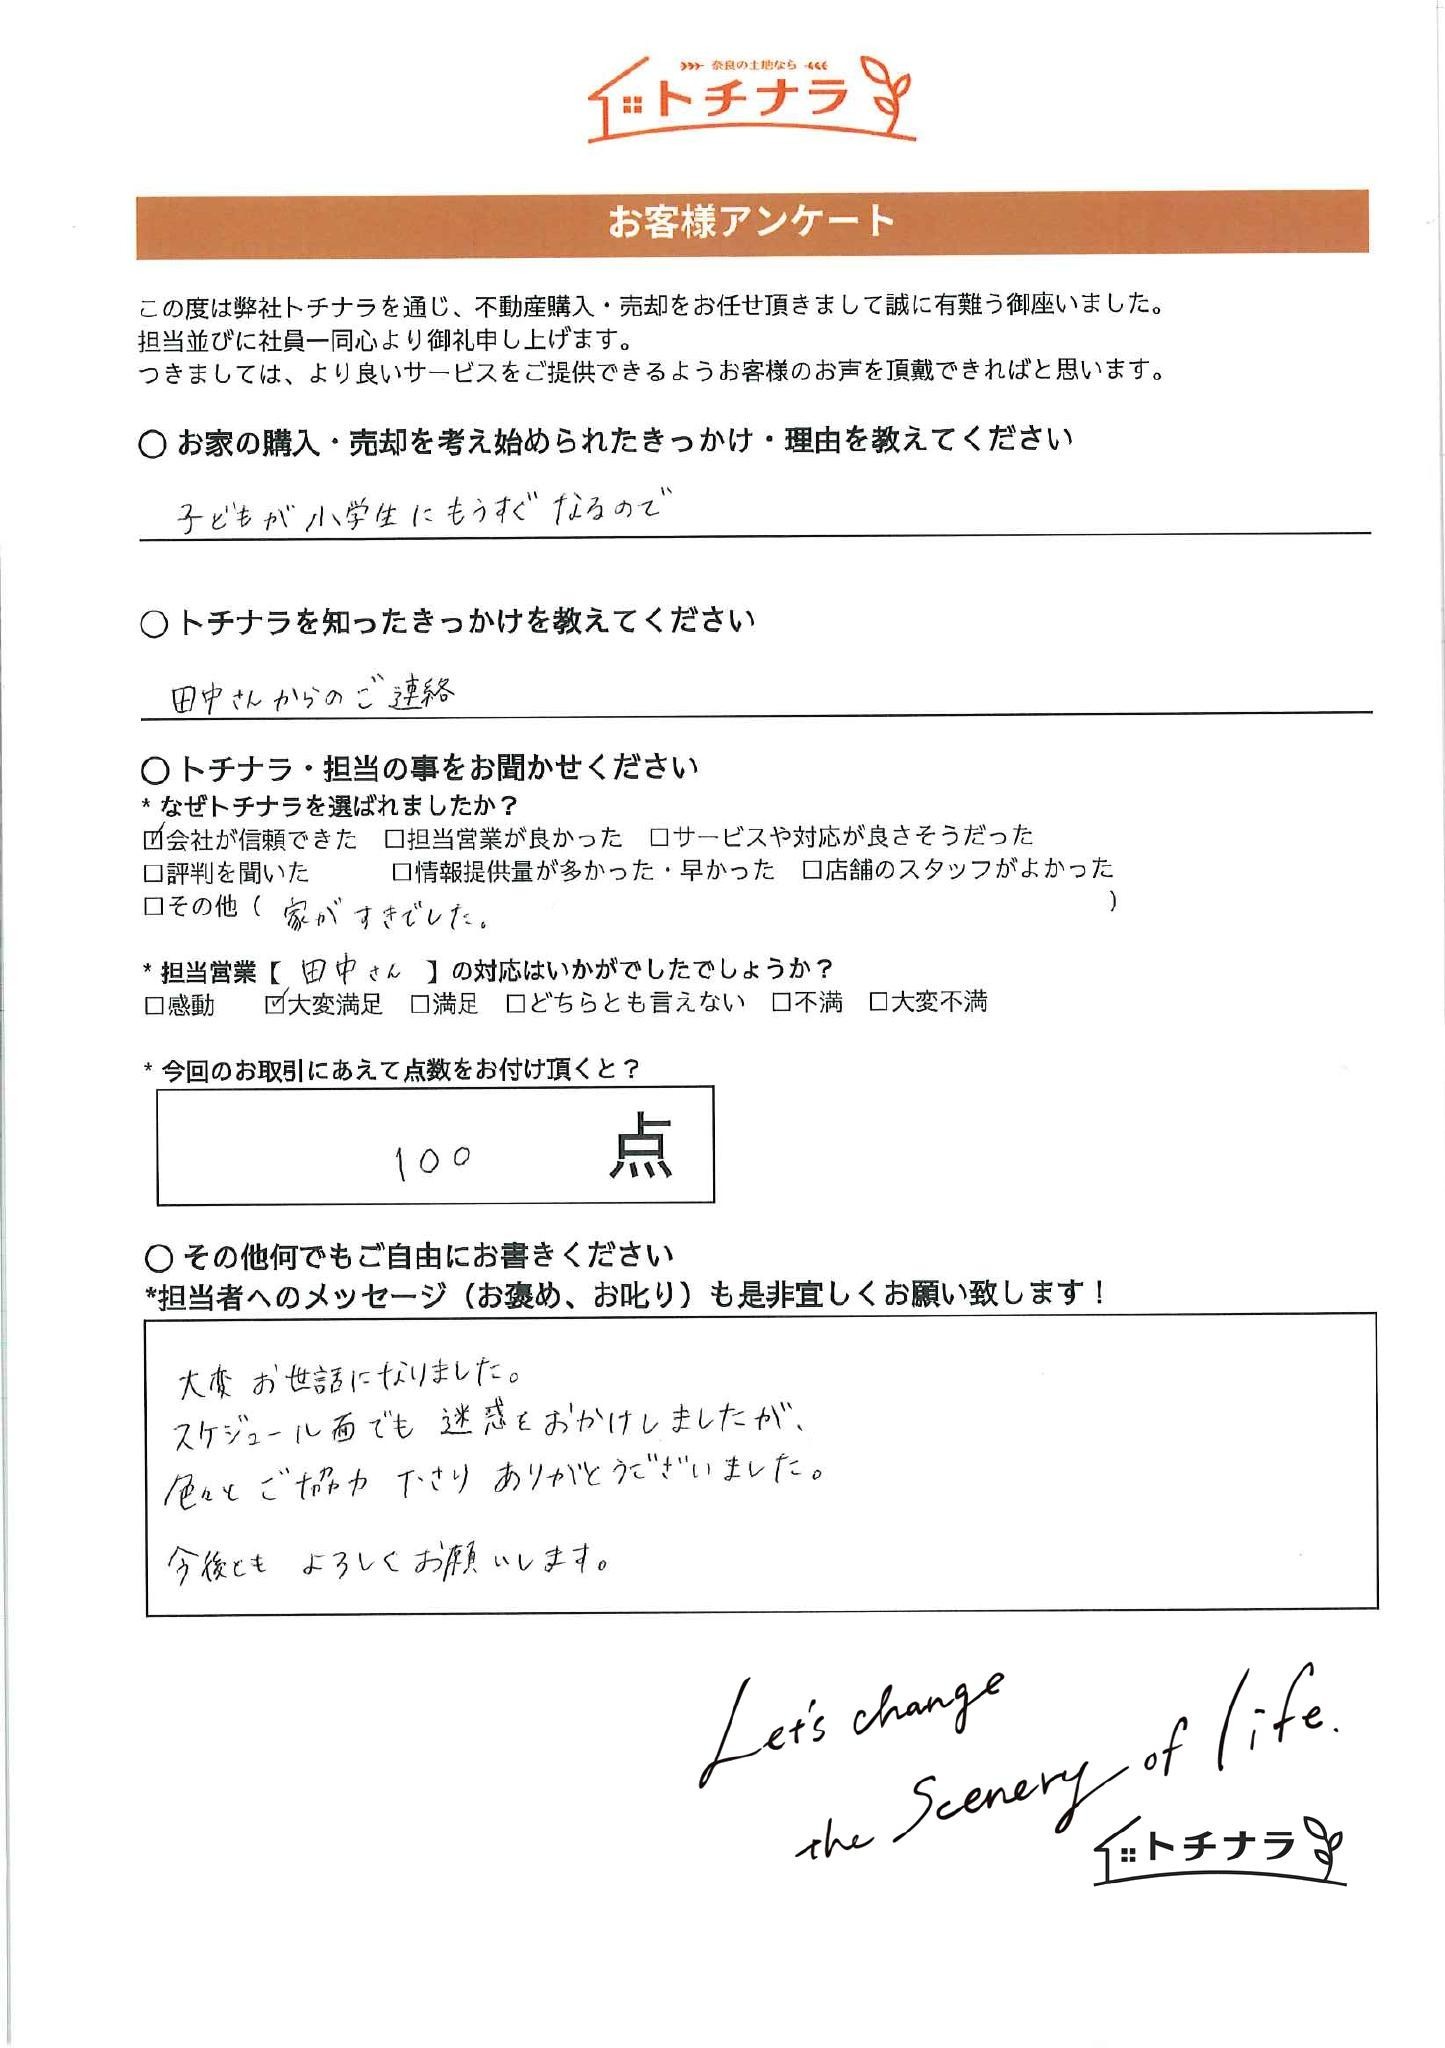 奈良の土地なら
トチナラ
お客様アンケート
この度は弊社トチナラを通じ、不動産購入・売却をお任せ頂きまして誠に有難う御座いました。
担当並びに社員一同心より御礼申し上げます。
つきましては、より良いサービスをご提供できるようお客様のお声を頂戴できればと思います。
○ お家の購入・売却を考え始められたきっかけ・理由を教えてください
子どもが小学生にもうすぐなるので
○ トチナラを知ったきっかけを教えてください
田中さんからのご連絡
○ トチナラ・担当の事をお聞かせください
* なぜトチナラを選ばれましたか？
☑会社が信頼できた □担当営業が良かった □サービスや対応が良さそうだった
□評判を聞いた □情報提供量が多かった・早かった □店舗のスタッフがよかった
□その他（ 家がすきでした。 ）
* 担当営業【 田中さん 】の対応はいかがでしたでしょうか？
□感動 ☑大変満足 □満足 □どちらとも言えない □不満 □大変不満
* 今回のお取引にあえて点数をお付け頂くと？
100 点
○ その他何でもご自由にお書きください
*担当者へのメッセージ（お褒め、お叱り）も是非宜しくお願い致します！
大変お世話になりました。
スケジュール面でも迷惑をおかけしましたが、
色々とご協力下さりありがとうございました。
今後ともよろしくお願いします。
Let's change
the Scenery of life.
トチナラ